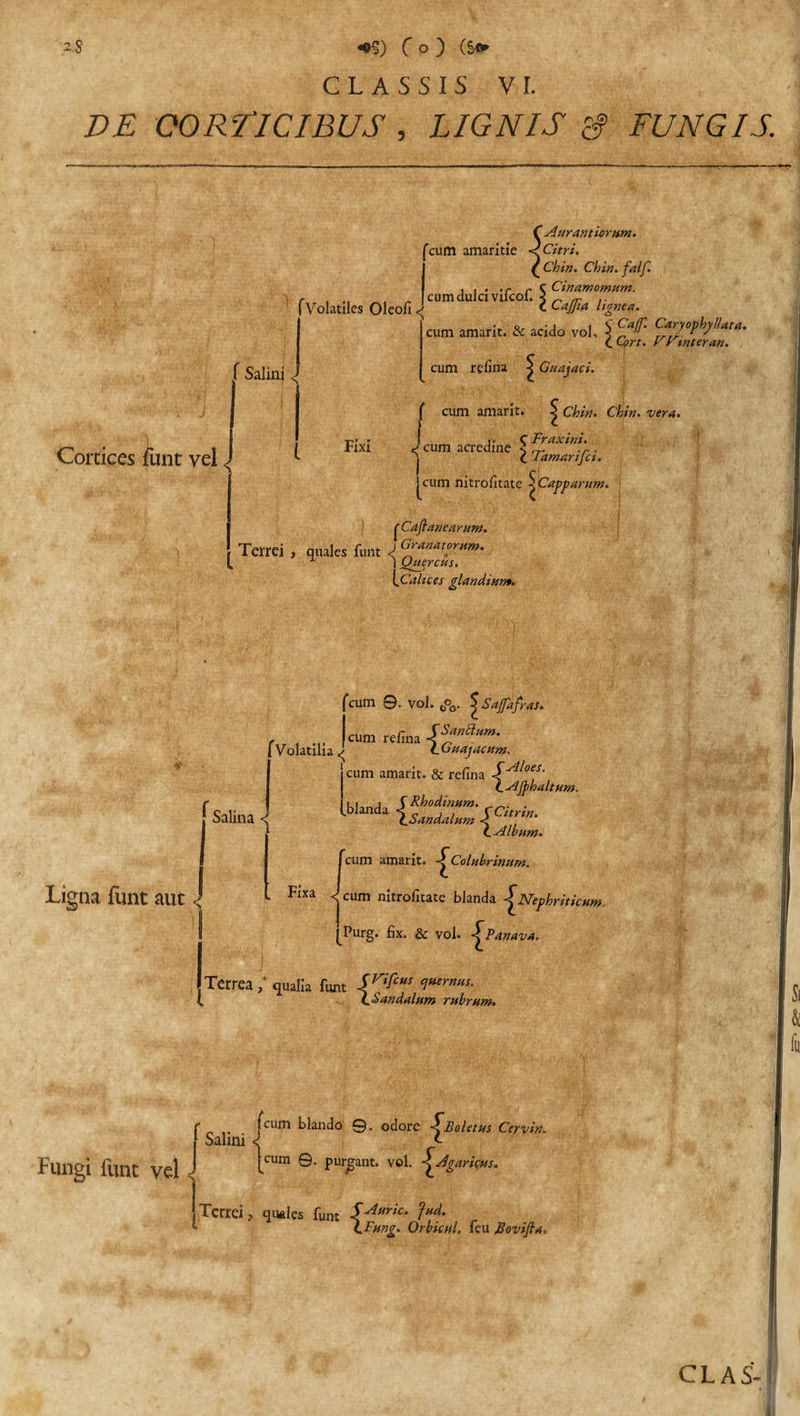 28 (o)
CLASSIS VI.
DE CORTICIBUS, LIGNIS & FUNGIS.
Cortices ſunt vel
Salini
Volatiles Oleoſi
cum amaritie
Aurantiorum.
Citri.
Chin. Chin. falſ.
cum dulci viſcoſ.
Cinamomum.
Caſſia lignea.
cum amarit. & acido vol.
Caſſ. Caryophyllata.
Cort. VVinteran.
cum reſina Guajaci.
Fixi
cum amarit. Chin. Chin. vera.
cum acredine
Fraxini.
Tamariſci.
cum nitroſitate Capparum.
Terrei, quales ſunt
Caſtanearum.
Granatorum.
Quercûs.
Calices glandium.
Ligna ſunt aut
Salina
Volatilia
cum 🜔. vol. Saſſafras.
cum reſina
Sanctum.
Guajacum.
cum amarit. & reſina
Aloes.
Aſphaltum.
blanda
Rhodinum.
Sandalum
Citrin.
Album.
Fixa
cum amarit. Colubrinum.
cum nitroſitate blanda Nephriticum
Purg. fix. & vol. Panava.
Terrea, qualia ſunt
Viſcus quernus.
Sandalum rubrum.
Fungi ſunt vel
Salini
cum blando 🜔. odore Boletus Cervin.
cum 🜔. purgant. vol. Agaricus.
Terrei, quales ſunt
Auric. Jud.
Fung. Orbicul. ſeu Boviſta.
CLAS-